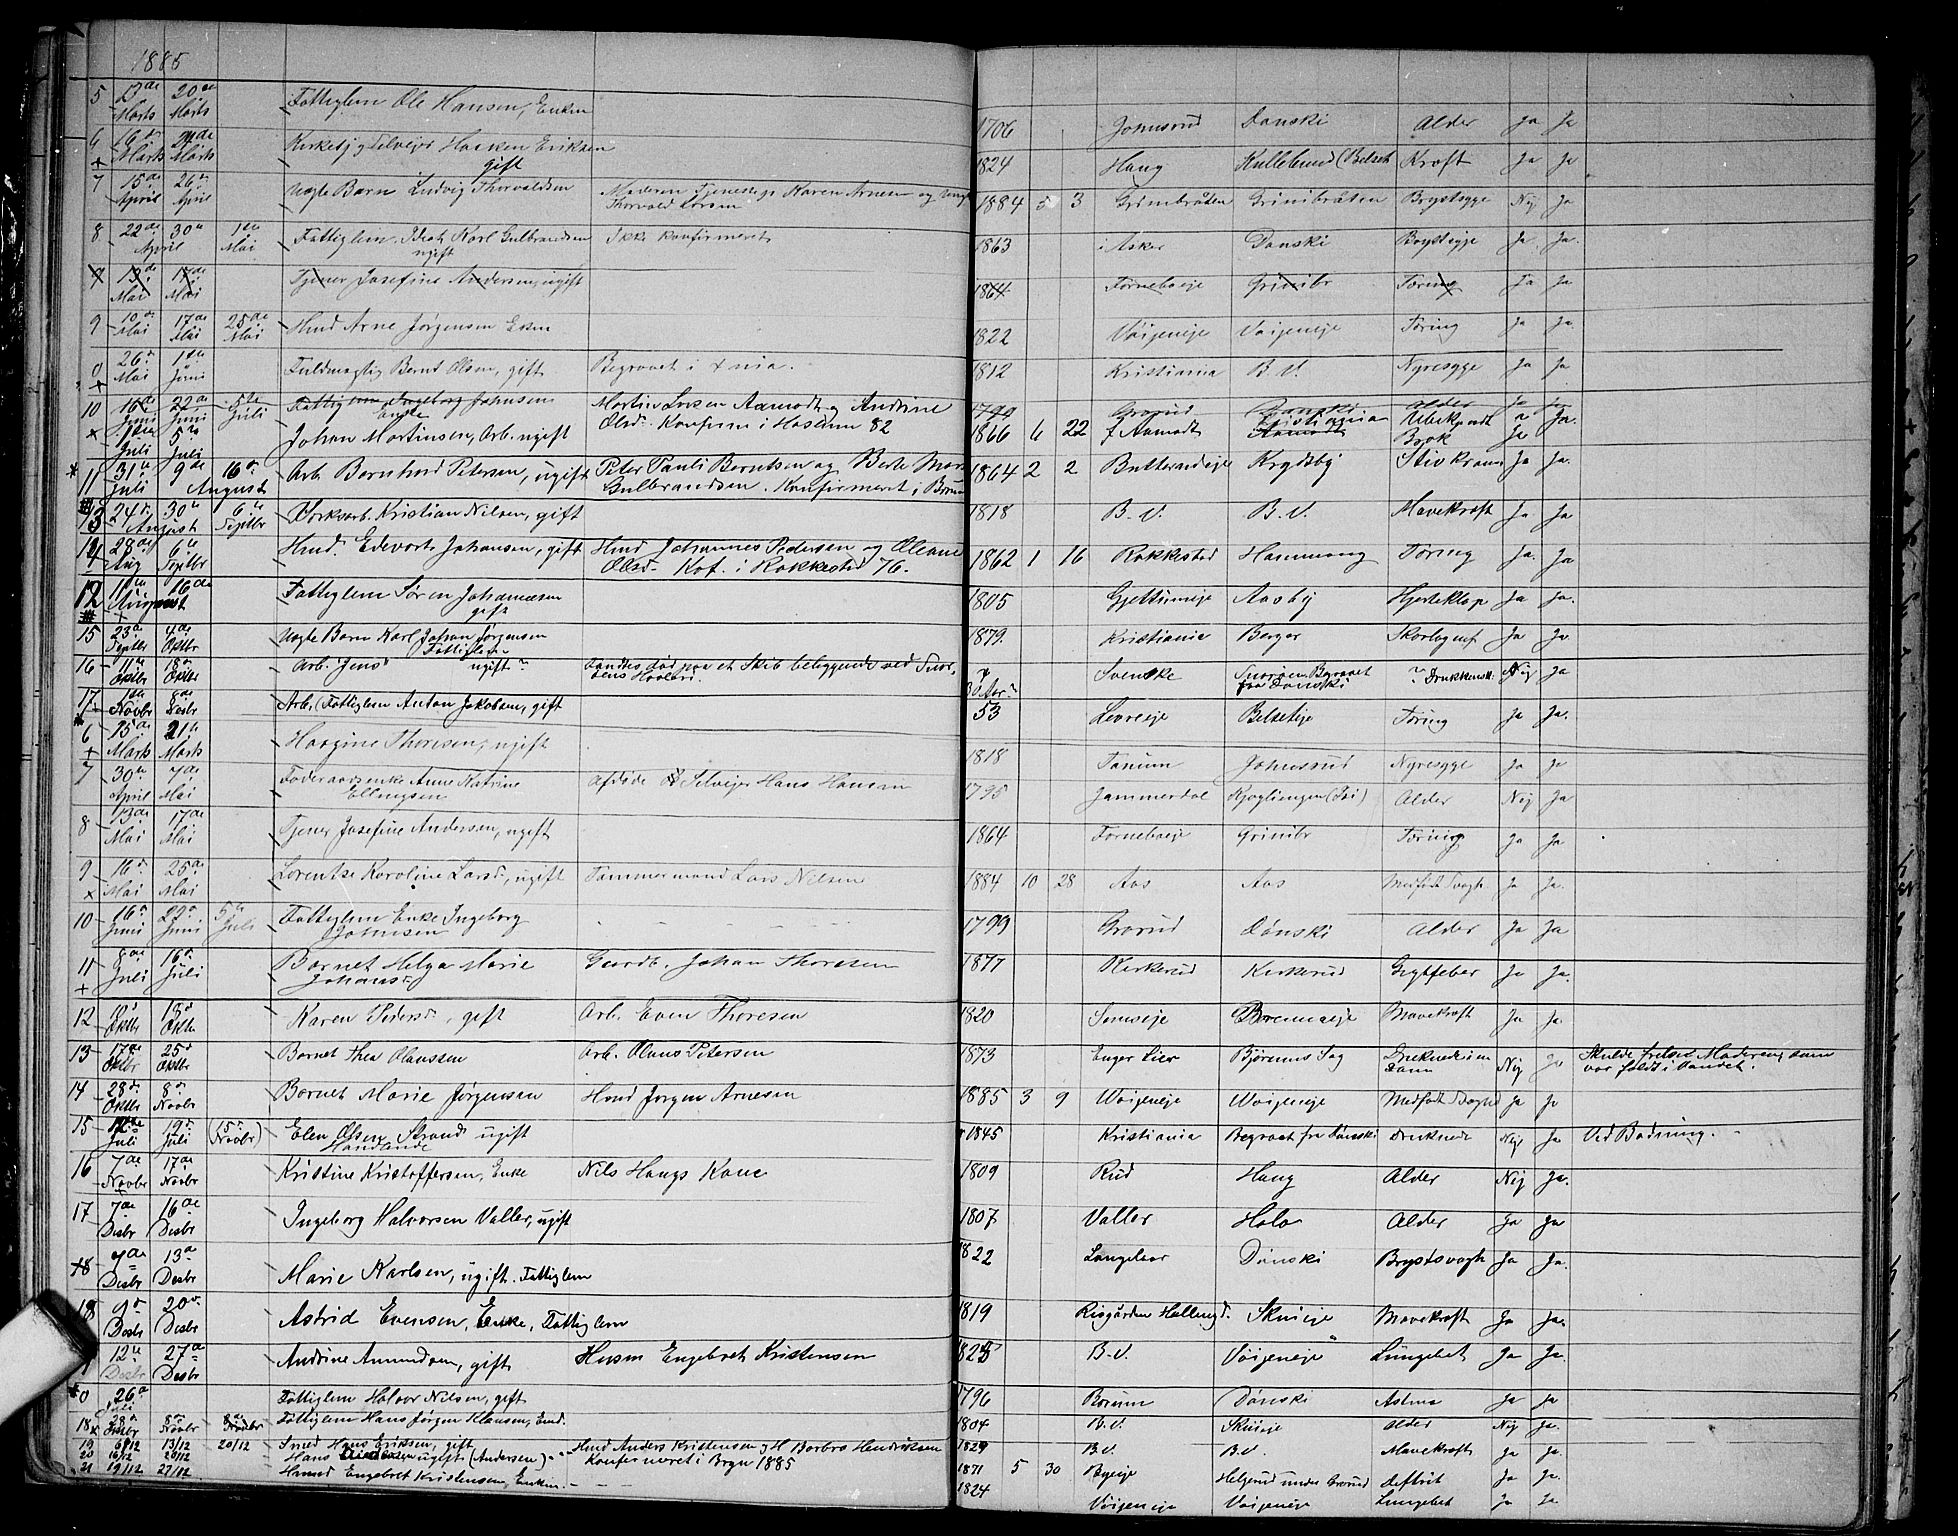 1885
5 13de Marts 20de Marts Fattiglem Ole Hansen, Enkem 1706 Johnsrud Dønski Alder Ja Ja
6 16d Marts 24de Marts Kirkebyg Selvejer Haaken Eriksen gift 1824 Haug Kullebund (Belset Kræft Ja Ja
7 15de April 26d April Uægte Barn Ludvig Thorvaldsen Moderen Tjenestep. Karen Arnesen og Thorvald Larsen 1884 5 3 Grimbråten Grinibråten Brystsyge Nej Ja
8 22de 30te April 1ste Mai Fattiglem Idiot Karl Gulbrandsen ugift Ikke konfirmeret 1863 i Asker Dønski Brystsyge Ja Ja.
9 13de Mai 17de Mai Tjener Josefine Andersen, ugift 1864 Forneboeje Grinibr Tæring Ja Ja
9 10d Mai 17de Mai 25de Mai Hmd Arne Jørgensen Ekm 1822 Vøijeneje Vøijeneje Tæring Ja Ja
26d Mai 1ste Juni Fuldmægtig Bernt Olsen, gift Begravet i Xania. 1812 Kristiania B.V. Nyresyge Ja Ja
10 16de Juni 22de Juni 5te Juli Fattiglem Ingeborg Johnsen Enke 1799 Grorud Dønski Alder Ja Ja
1ste Juli 5te Juli Johan Martinsen, Arb. ugift Martin Larsen Aamodt og Andrine Olsd. Konfirm i Haslum 82 1866 6 22 Aamodt Kristiania Ubekjendt Brok Ja Ja.
11 31te Juli 9de 16d August Arb. Bernhard Petersen, ugift Peter Pauli Berntsen og Berte Marie Gulbrandsen. Konfirmeret i Bærum 1864 2 2 Butterudeje Krydsby Stivkrampe Ja Ja.
13 24d 30te August 6te Septbr Værksarb. Kristian Nilsen, gift 1818 B.V. B.V. Mavekræft Ja Ja
14 28de Aug 6te Septbr Hmd. Edevart Johansen, gift Hmd Johannes Pedersen og Oleane Olsd. Kof. i Rakkestad 76. 1862 1 16 Rakkestad Hammang Tæring Ja. Ja
12 11te 16de August Fattiglem Søren Johannesen gift 1805 Gjettumeje Aasby Hjerteklap Ja Ja.
15 23d Septbr 4de Oktbr Uægte Barn Karl Johan Jørgensen Fattiglem 1879. Kristiania Berger Skarlagensf. Ja Ja.
16 11te Oktbr 18d Oktbr Arb. "Jens" ugift? Fandtes død paa et Skib beliggende ved Snarøens Hovedø. ? 30 Aar? Svenske Snarøen Begravet fra Dønski ? Drukkensk. Nej Ja
17 1ste Novbr 8de Desbr Arb. (Fattiglem Anton Jakobsen, gift 53 Løvseje Belseteje Tæring Ja Ja.
6 15de Marts 21te Marts Hærgine Thoresen, ugift 1818 Tanum Johnsrud Nyresyge Ja Ja
7 30te April 7de Mai Føderaadsenke Anne Katrine Ellingsen Afdøde Selvejer Hans Hansen 1795 Jammerdal Kjøglingen (Loi) Alder Nej Ja
8 13de Mai 17de Mai Tjener Josefine Andersen, ugift 1864 Forneboeje Grinibr Tæring Ja Ja
9 16d Mai 25de Mai Lorentse Karoline Larsd, ugift Tømmermand Lars Nilsen 1884 10 28 Aas Aas Medfødt Svagh Ja Ja.
10 16d Juni 22d Juni 5te Juli Fattiglem Enke Ingeborg Johnsen 1799 Grorud Dønski Alder Ja Ja
11 8de Juli 16d Juli Barnet Helga Marie Johansd. Gaardb. Johan Thoresen 1877 Kirkerud Kirkerud Gigtfeber Ja Ja.
12 10d Oktbr 18d Oktbr Karen Pedersd, gift Arb. Even Thoresen 1820 Semseje Brenmaeje Mavekræft Ja Ja
13 17de Oktbr 25d Oktbr Barnet Thea Olaussen Arb. Olaus Petersen 1873 Enger Lier Bjørums Sag Druknede i en Dam Nej Ja Skulde frelse Moderen, som var faldt i Vandet.
14 28d Oktbr 8d Novbr Barnet Marie Jørgensen Hmd Jørgen Arnesen 1885 3 9 Vøijeneje Vøijeneje Medfødt Svaghed Ja Ja
15 12te Juli 19d Juli (15d Novbr) Elen Olsen Strand ugift Handlende 1845 Kristiania Begravet fra Dønski Druknede Nej Ja Ved Badning.
16 7de Novbr 17de Novbr Kristine Kristoffersen, Enke Nils Haugs Kone 1809 Rud Haug Alder Nej Ja.
17 7de Desbr 16de Desbr Ingeborg Halvorsen Valler, ugift 1807 Valler Hala Alder Ja Ja
18 7de Desbr 13d Desbr Marie Karlsen, ugift. Fattiglem 1822 Langelaar Dønski Brystsvagh Ja Ja.
19 9d Desbr 20d Desbr Astrid Evensen, Enke, Fattiglem 1819 Risgården Hallingd. Skuieje Mavekræft Ja Ja.
12te Desbr 27de Desbr Andrine Amundsen, gift Husm Engebret Kristensen 1825 B.V. Vøijeneje Lungebet Ja Ja
26d Juli Fattiglem Halvor Nilsen, gift 1796 Bærum Dønski Astma Ja Ja
18 28d Oktbr 8de Novbr 8de Novbr Fattiglem Hans Jørgen Klausen, Enkem. 1804 B.V. Skuieje Alder Nej Ja.
19 6/12 13/12 20/12 Smed Hans Eriksen, gift 1829 B.V. B.V. Mavekræft Ja Ja
20 16/12 20/12 Hans ugift (Andersen) Hmd Anders Kristensen og H Barbro Hendriksen Konfirmeret i Bryn 1885 1871 5 30 Byeje Helgerud under Grorud Difterit Ja Ja
21 19/12 27/12 Hmmd Engebret Kristensen, Enkem. 1824 Vøijeneje Vøijeneje Lungebet Ja Ja